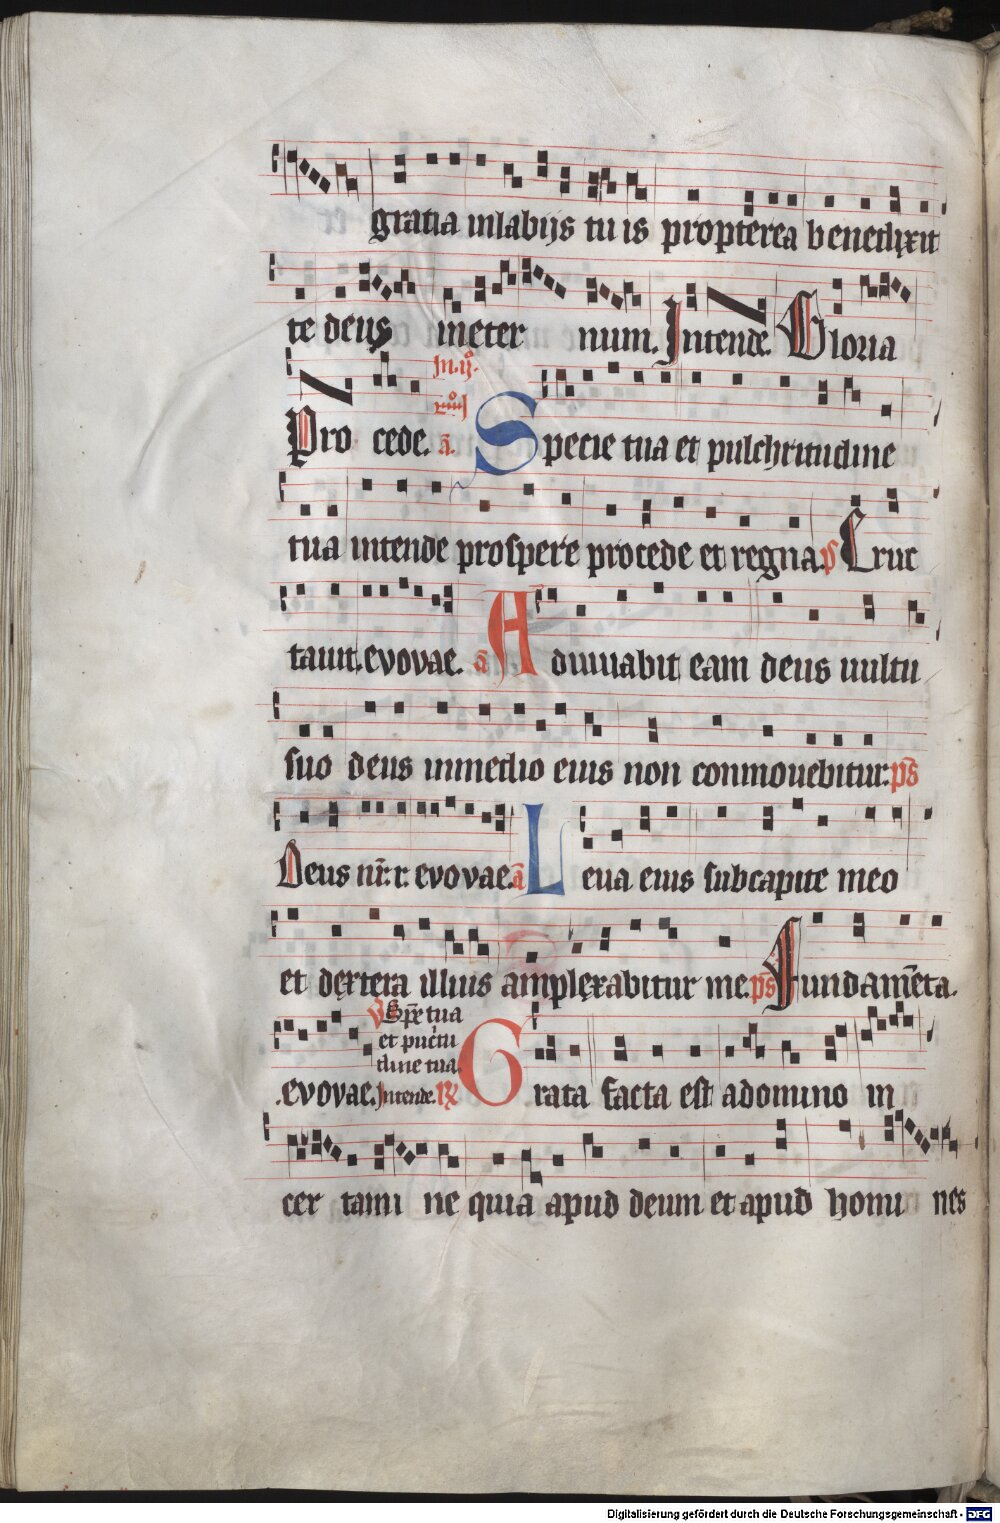 gratia in labijs tu is propterea benedixit
te deus in eter num. Intende. Gloria
In. ij.
Pro cede. a. Specie tua et pulchritudine
tua intende prospere procede et regna. ps Eruc
tauit. evovae. a Adiuuabit eam deus uultu
suo deus in medio eius non conmouebitur. ps
Deus nr. r. evovae. a Leua eius sub capite meo
et dextera illius amplexabitur me. ps Fundamēta.
Spē tua
et pulcritu
dine tua.
evovae. Intende. Grata facta est a domino in
cer tami ne quia apud deum et apud homi nes
Digitalisierung gefördert durch die Deutsche Forschungsgemeinschaft - DFG